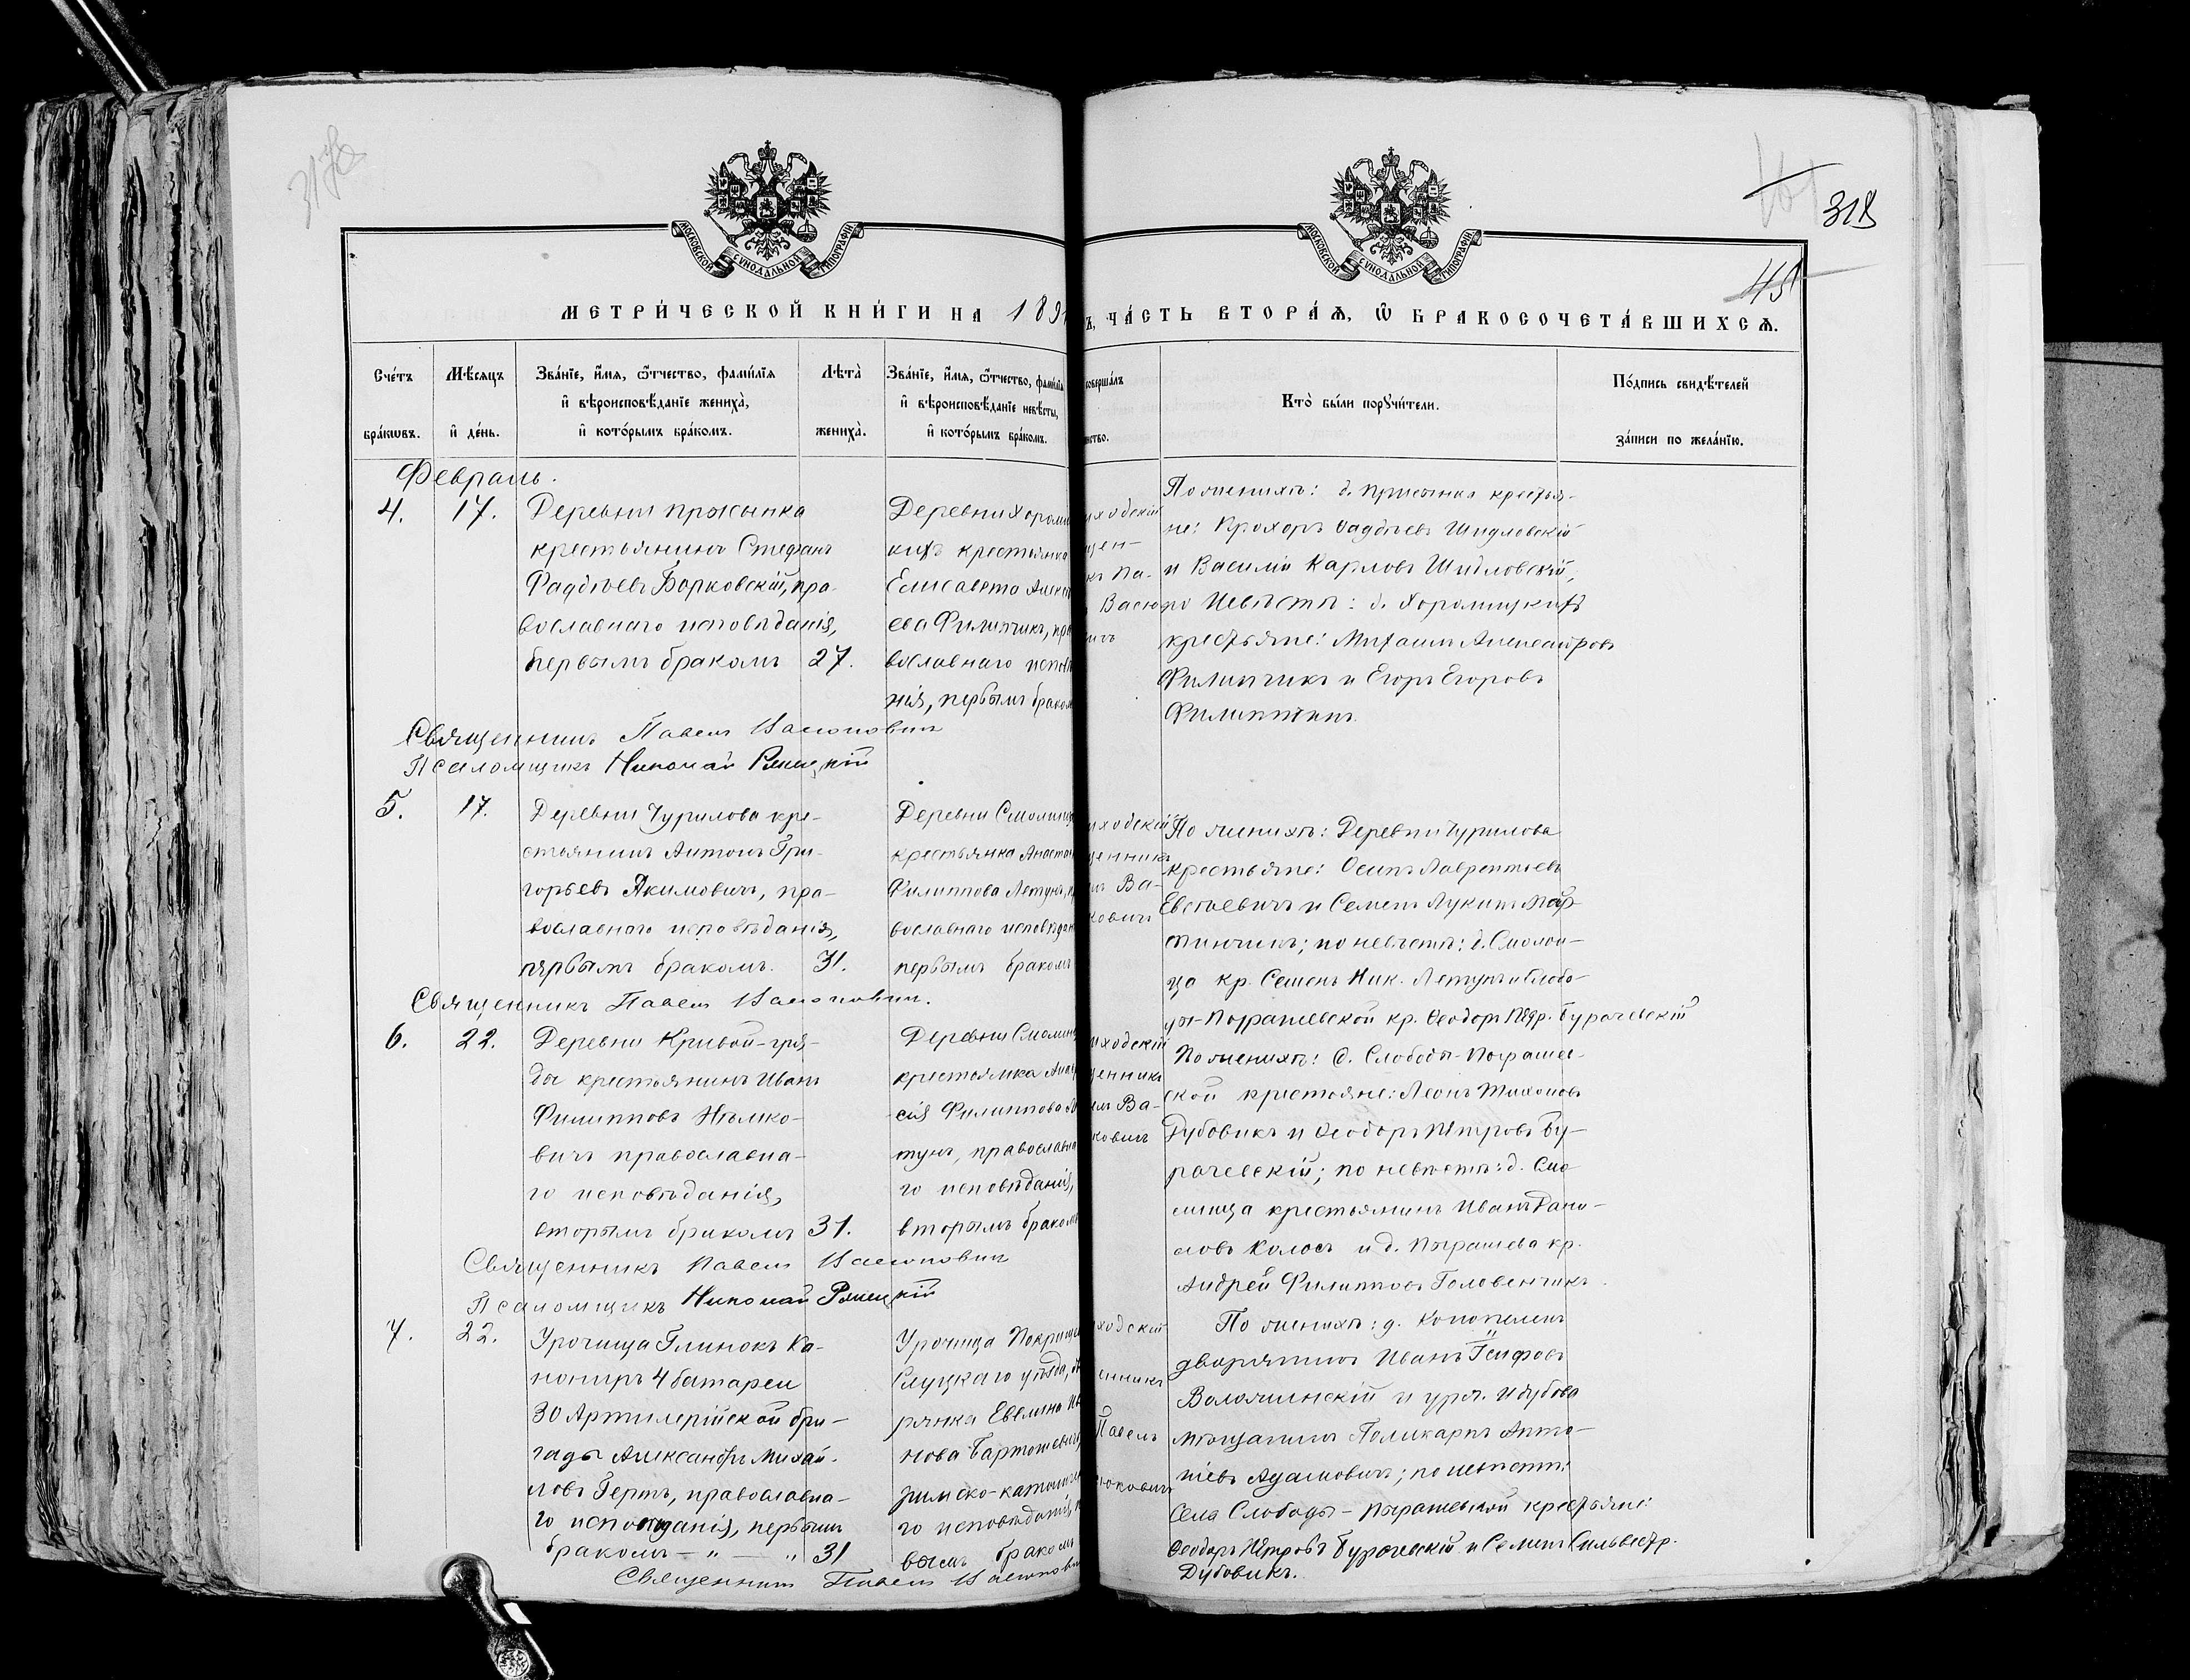 318
45
МОСКОВСКОЙ СѴНОДАЛЬНОЙ ТИПОГРАФІИ
МОСКОВСКОЙ СѴНОДАЛЬНОЙ ТИПОГРАФІИ
МЕТРИ́ЧЕСКОЙ КНИ́ГИ НА 189
Ъ, ЧА́СТЬ ВТОРА́Ѧ, Ѡ҆ БРАКОСОЧЕТА́ВШИХСѦ.
Сче́тъ бра́кѡвъ.
Мѣ́сѧцъ и҆ де́нь.
Зва́нїе, и҆́мѧ, ѻ҆́тчество, фами́лїѧ
и҆ вѣроисповѣ́данїе жениха̀,
и҆ кото́рымъ бра́комъ.
Лѣ́та̀ жениха̀.
Зва́нїе, и҆́мѧ, ѻ҆́тчество, фами́лїѧ
и҆ вѣроисповѣ́данїе невѣ́сты,
и҆ кото́рымъ бра́комъ.
соверша́лъ
нство.
Кто̀ бы́ли порꙋчи́тели.
По́дпись свидѣ́телей
за́писи по жела́нїю.
Февраль.
4.
17.
Деревни Прысынка
крестьянинъ Стефанъ
Фадѣевъ Борковскій, пра-
вославнаго исповѣданія,
первымъ бракомъ
27.
Деревни Хороми
кихъ крестьянка
Елисавета Алекс
ева Филипчикъ, пр
вославнаго испов
нія, первымъ браком
иходскій
щен-
къ Па-
Васю
ичъ
По женихѣ: д. Присынка крестья-
не: Прохоръ Фадѣевъ Шидловскій
и Василій Карловъ Шидловскій,
по невѣстѣ: д. Хоромицкихъ
крестьяне: Михаилъ Александровъ
Филипчикъ и Егоръ Егоровъ
Филипчикъ.
Священникъ Павелъ Васюковичъ
Псаломщикъ Николай
5.
17.
Деревни Чурилова кре-
стьянинъ Антонъ Гри-
горьевъ Якимовичъ, пра-
вославнаго исповѣданія,
первымъ бракомъ.
31.
Деревни Смолиц
крестьянка Анаста
Филиппова Летунъ, п
вославнаго исповѣдан
первымъ бракомъ
иходскій
щенникъ
лъ Ва-
ковичъ
По женихѣ: Деревни Чурилова
крестьяне: Осипъ Лаврентьевъ
Евсіевичъ и Семенъ Лукинъ Мар-
тинчикъ; по невѣстѣ: д. Смоли-
ца кр. Семенъ Ник. Летунъ и Слобо-
ды-Пырашевской кр. Ѳеодоръ Петр. Бурачевскій
Священникъ Павелъ Васюковичъ.
6.
22.
Деревни Кривой-гря-
ды крестьянинъ Иванъ
Филипповъ Нѣмко-
вичъ православна-
го исповѣданія,
вторымъ бракомъ
31.
Деревни Смолиц
крестьянка Анас
сія Филиппова Ле
тунъ, православна
го исповѣданія,
вторымъ бракомъ
иходскій
щенникъ
лъ Ва-
ковичъ
По женихѣ: С. Слободы-Пырашев-
ской крестьяне: Леонъ Тихоновъ
Дубовикъ и Ѳеодоръ Петровъ Бу-
рачевскій; по невѣстѣ: д. Смо
лица крестьянинъ Иванъ Дани-
ловъ Колосъ и д. Пырашева кр.
Андрей Филипповъ Головенчикъ.
Священникъ Павелъ Васюковичъ
Псаломщикъ Николай
7.
22.
Урочища Глинокъ Ка-
нониръ 4 батареи
30 Артилерійской бри-
гады Александръ Михай-
ловъ Гертъ, православна-
го исповѣданія, первымъ
бракомъ — " — "
31
Урочища Покрище
Слуцкаго уѣзда,
рянка Евелина
нова Бартошевичъ
римско-католиче
го исповѣданія,
вымъ бракомъ
иходскій
щенникъ
Павелъ
юковичъ
По женихѣ: д. Конопелекъ
дворянинъ Иванъ Іосифовъ
Воложинскій и уроч.
мѣщанинъ Поликарпъ Анто-
ніевъ Адамовичъ; по невѣстѣ:
Села Слободы-Пырашевской крестьяне:
Ѳеодоръ Петровъ Бурачевскій и Семенъ Сильвестр.
Дубовикъ.
Священникъ Павелъ Васюкови